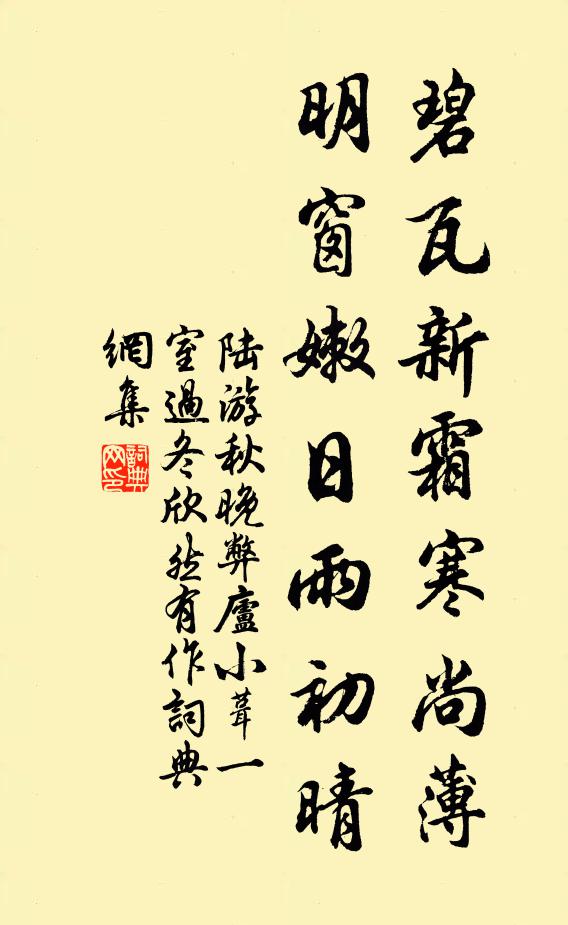 碧瓦新霜寒尚薄
明窗嫩日雨初晴
陆游秋晚弊廬小葺一
室過冬欣然有作詞典
網集
詞典
网印